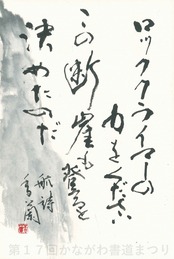 ロッククライマーの
力をください
この断崖も
登ると
決めたのだ
航詩
第17回かながわ書道まつり